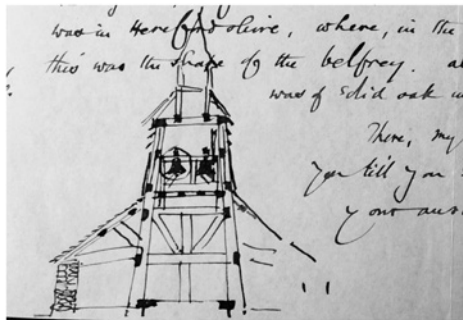 was in Herefordshire, where, in the
this was the shape of the belfrey. a
was of solid oak
There, my
you till you
your